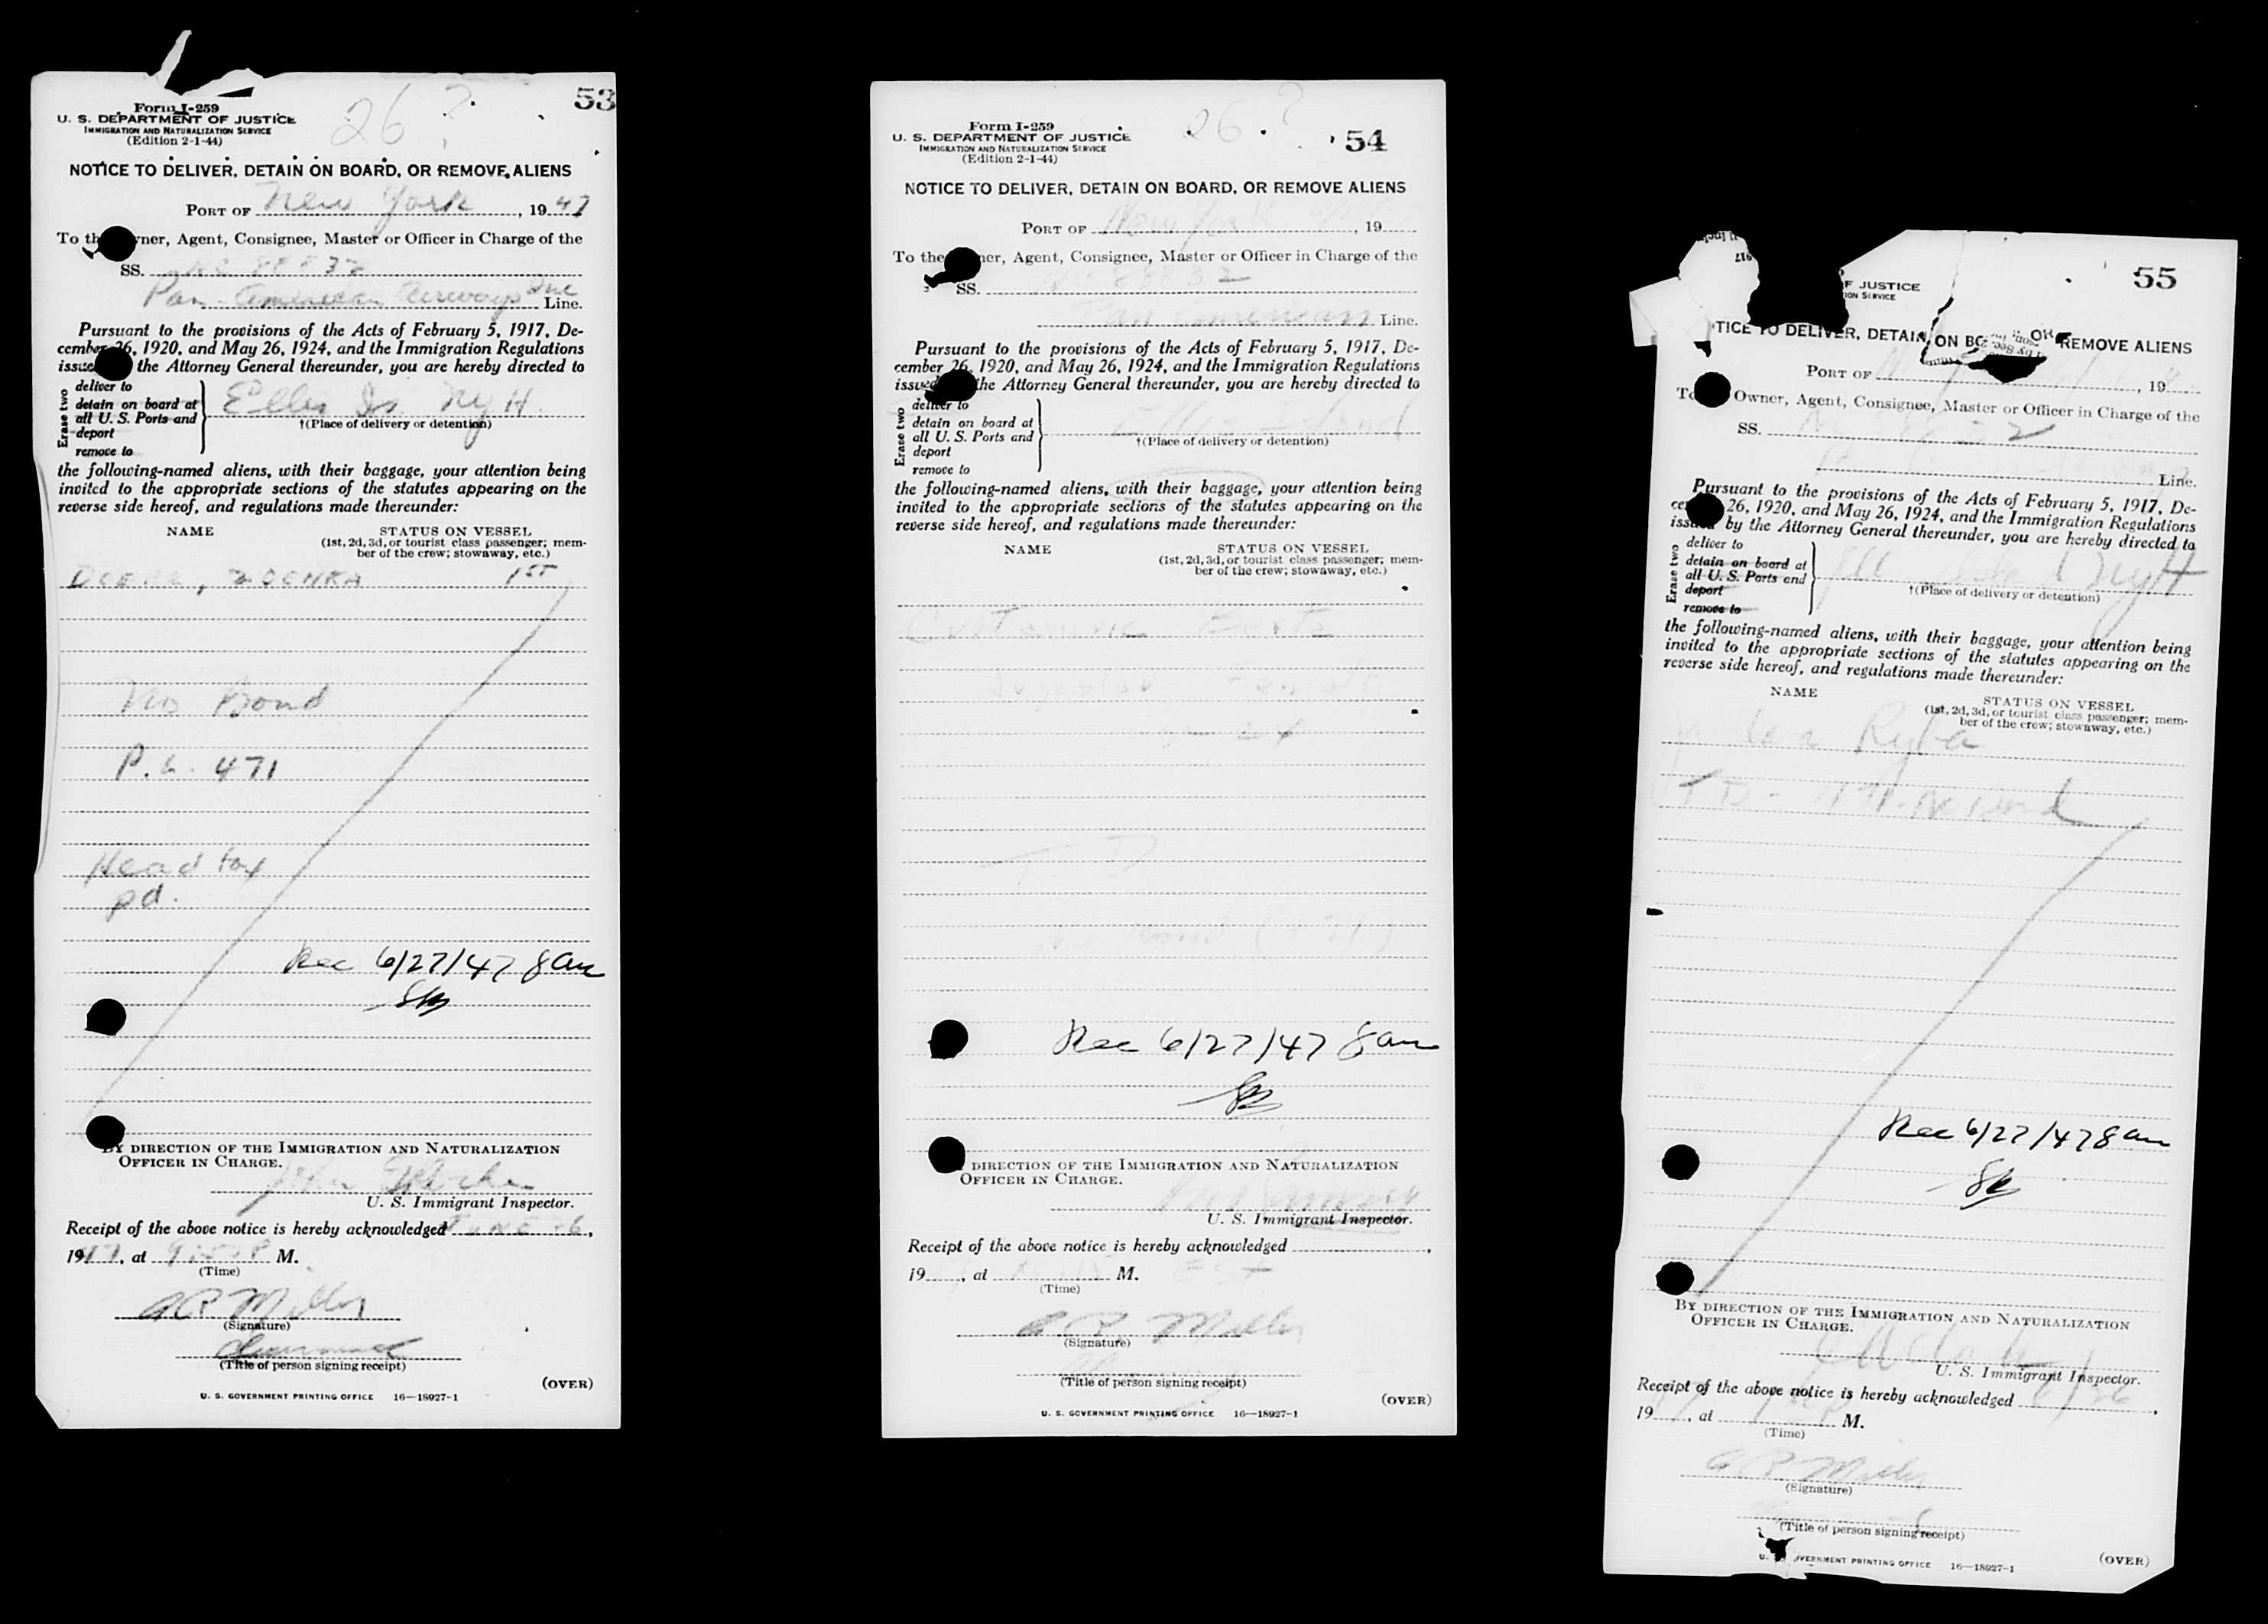 53
26 ?
Form I-259
U. S. DEPARTMENT OF JUSTICE
IMMIGRATION AND NATURALIZATION SERVICE
(Edition 2-1-44)
NOTICE TO DELIVER, DETAIN ON BOARD, OR REMOVE ALIENS
PORT OF New York, 1947
To th ner, Agent, Consignee, Master or Officer in Charge of the
SS. NC 88832
Pan American Airways Inc Line.
Pursuant to the provisions of the Acts of February 5, 1917, De-
cember 26, 1920, and May 26, 1924, and the Immigration Regulations
issued the Attorney General thereunder, you are hereby directed to
Erase two
deliver to
detain on board at
all U. S. Ports and
deport
remove to
Ellis Is NYH
†(Place of delivery or detention)
the following-named aliens, with their baggage, your attention being
invited to the appropriate sections of the statutes appearing on the
reverse side hereof, and regulations made thereunder:
NAME STATUS ON VESSEL
(1st, 2d, 3d, or tourist class passenger; mem-
ber of the crew; stowaway, etc.)
ZDENKA 1ST
No Bond
P.L. 471
Head tax
pd.
Rec 6/27/47 8am
BY DIRECTION OF THE IMMIGRATION AND NATURALIZATION
OFFICER IN CHARGE.
John
U. S. Immigrant Inspector.
Receipt of the above notice is hereby acknowledged June 26,
1947, at M.
(Time)
A R Miller
(Signature)
(Title of person signing receipt)
(OVER)
U. S. GOVERNMENT PRINTING OFFICE 16—18927-1
54
26 ?
Form I-259
U. S. DEPARTMENT OF JUSTICE
IMMIGRATION AND NATURALIZATION SERVICE
(Edition 2-1-44)
NOTICE TO DELIVER, DETAIN ON BOARD, OR REMOVE ALIENS
PORT OF New York, 19
To the ner, Agent, Consignee, Master or Officer in Charge of the
SS. NC 88832
Pan American Line.
Pursuant to the provisions of the Acts of February 5, 1917, De-
cember 26, 1920, and May 26, 1924, and the Immigration Regulations
issued the Attorney General thereunder, you are hereby directed to
Erase two
deliver to
detain on board at
all U. S. Ports and
deport
remove to
Ellis Island
†(Place of delivery or detention)
the following-named aliens, with their baggage, your attention being
invited to the appropriate sections of the statutes appearing on the
reverse side hereof, and regulations made thereunder:
NAME STATUS ON VESSEL
(1st, 2d, 3d, or tourist class passenger; mem-
ber of the crew; stowaway, etc.)
T D
Rec 6/27/47 8am
DIRECTION OF THE IMMIGRATION AND NATURALIZATION
OFFICER IN CHARGE.
U. S. Immigrant Inspector.
Receipt of the above notice is hereby acknowledged ,
19 , at M. EST
(Time)
A R Miller
(Signature)
(Title of person signing receipt)
(OVER)
U. S. GOVERNMENT PRINTING OFFICE 16—18927-1
55
F JUSTICE
ION SERVICE
TICE TO DELIVER, DETAIN ON BO OR REMOVE ALIENS
PORT OF , 19
To Owner, Agent, Consignee, Master or Officer in Charge of the
SS.
Line.
Pursuant to the provisions of the Acts of February 5, 1917, De-
cem 26, 1920, and May 26, 1924, and the Immigration Regulations
issued by the Attorney General thereunder, you are hereby directed to
Erase two
deliver to
detain on board at
all U. S. Ports and
deport
remove to
Ell Island NYH
†(Place of delivery or detention)
the following-named aliens, with their baggage, your attention being
invited to the appropriate sections of the statutes appearing on the
reverse side hereof, and regulations made thereunder:
NAME STATUS ON VESSEL
(1st, 2d, 3d, or tourist class passenger; mem-
ber of the crew; stowaway, etc.)
Ryfa
TD - 471 - No Bond
Rec 6/27/47 8am
BY DIRECTION OF THE IMMIGRATION AND NATURALIZATION
OFFICER IN CHARGE.
U. S. Immigrant Inspector.
Receipt of the above notice is hereby acknowledged 6/26,
19 , at M.
(Time)
A R Miller
(Signature)
(Title of person signing receipt)
(OVER)
U. VERNMENT PRINTING OFFICE 16—18927-1